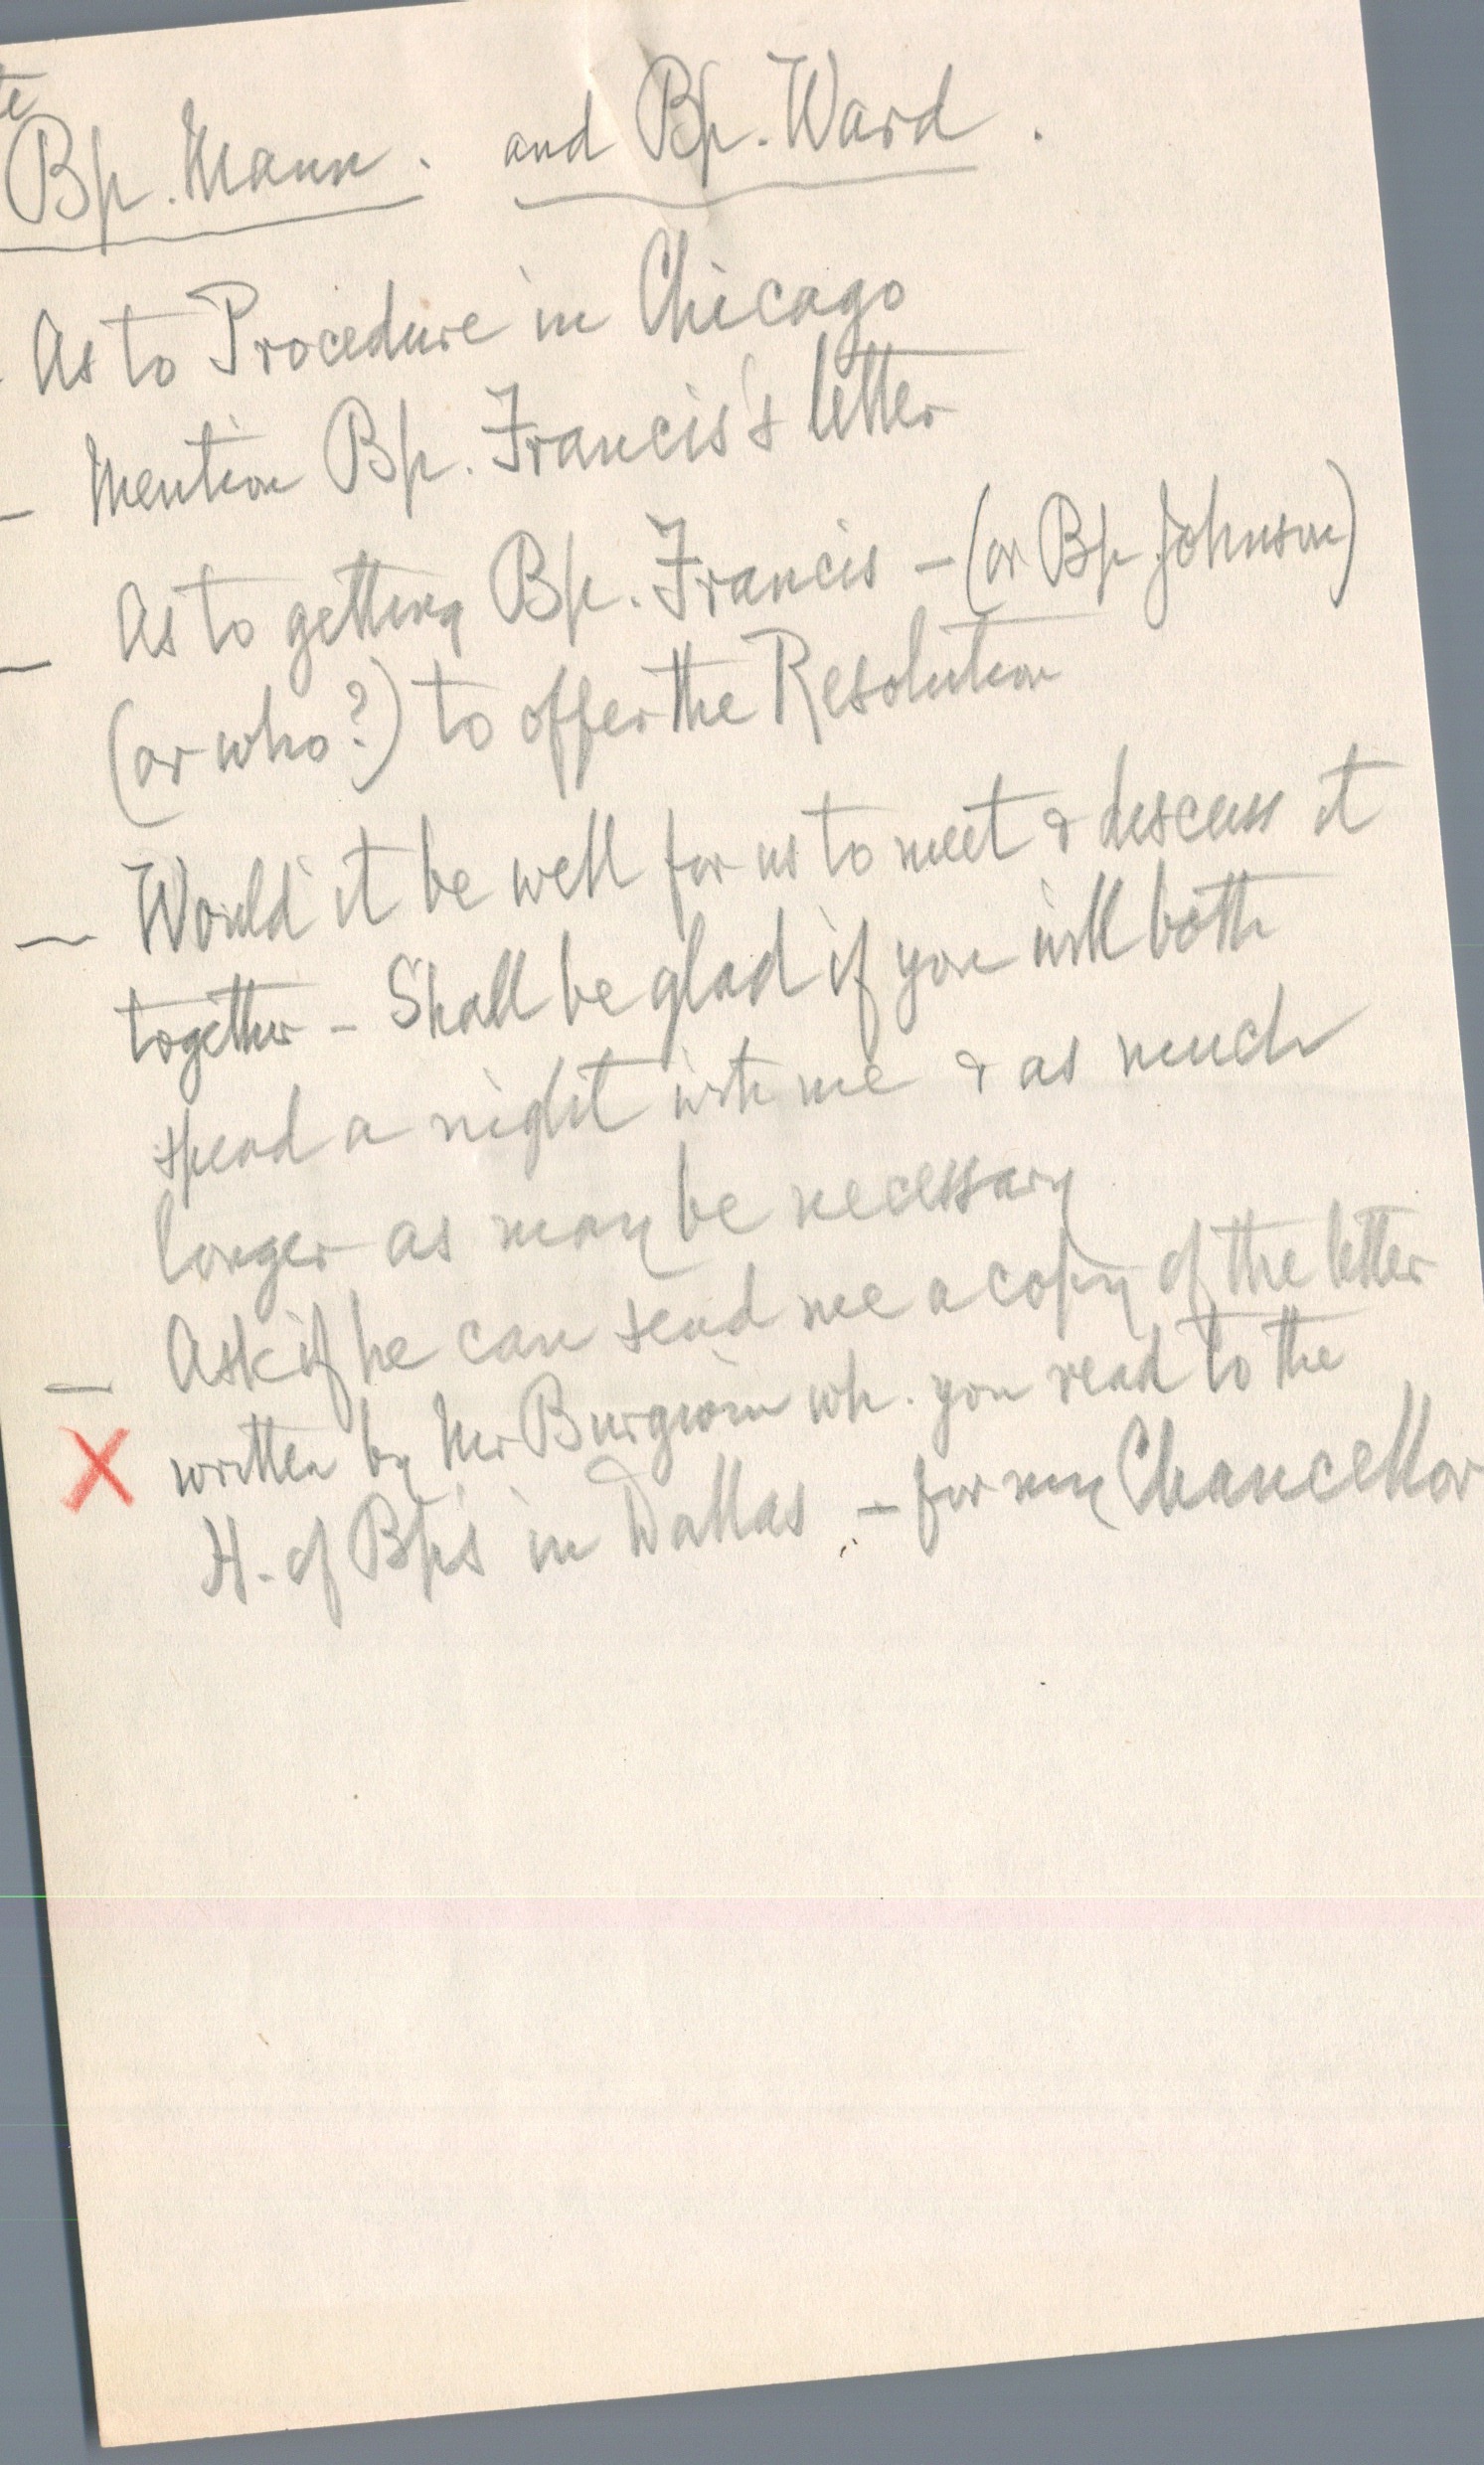 Bp. Mann. and Bp. Ward.
- As to Procedure in Chicago
- Mention Bp. Francis's letter
- As to getting Bp. Francis - (or Bp Johnson)
(or who?) to offer the Resolution
- Would it be well for us to meet & discuss it
together - Shall be glad if you will both
spend a night with me & as much
longer as may be necessary
- Ask if he can send me a copy of the letter
X written by Mr Burgwin wh. you read to the
H. of Bps in Dallas - for my Chancellor